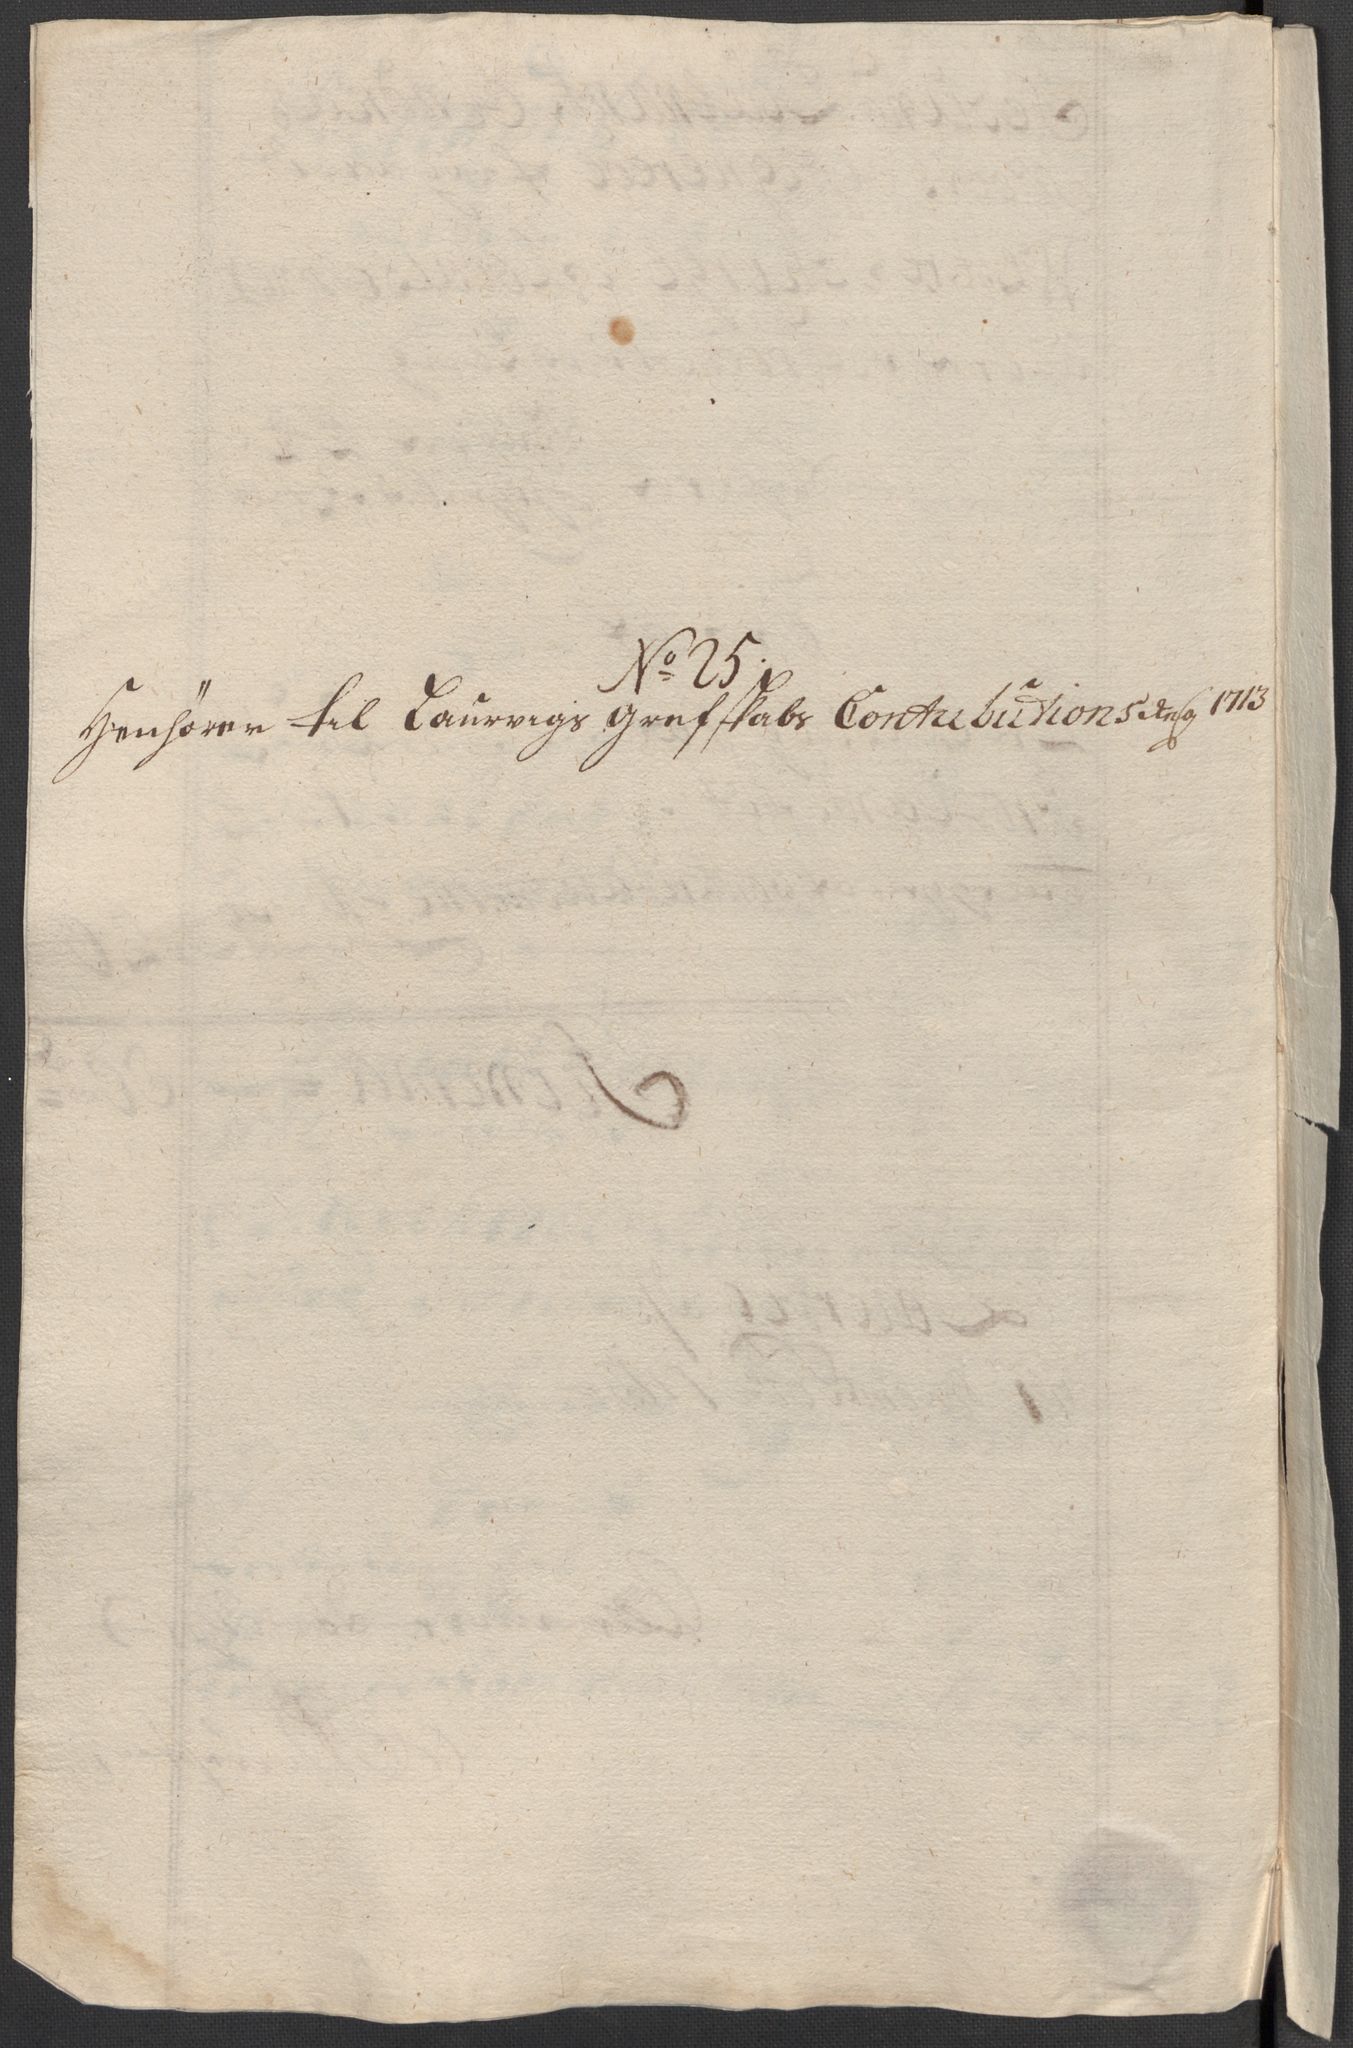 No 25.
Henhörer til Laurvigs Grefskabs Contribútions 1713